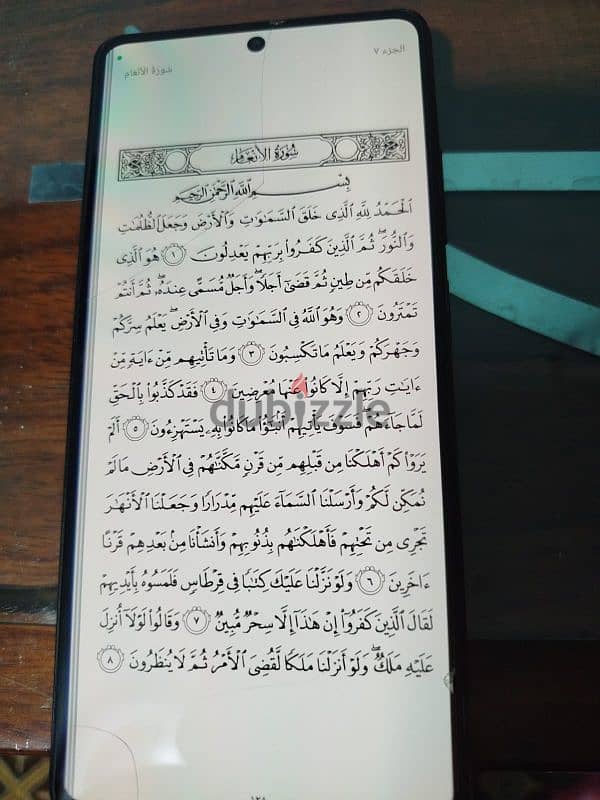 الجزء ٧
سُورَةُ الأَنْعَام
سُورَةُ الأَنْعَامِ
بِسْمِ اللَّهِ الرَّحْمَٰنِ الرَّحِيمِ
الْحَمْدُ لِلَّهِ الَّذِي خَلَقَ السَّمَاوَاتِ وَالْأَرْضَ وَجَعَلَ الظُّلُمَاتِ
وَالنُّورَ ۖ ثُمَّ الَّذِينَ كَفَرُوا بِرَبِّهِمْ يَعْدِلُونَ ١ هُوَ الَّذِي
خَلَقَكُم مِّن طِينٍ ثُمَّ قَضَىٰ أَجَلًا ۖ وَأَجَلٌ مُّسَمًّى عِندَهُ ۖ ثُمَّ أَنتُمْ
تَمْتَرُونَ ٢ وَهُوَ اللَّهُ فِي السَّمَاوَاتِ وَفِي الْأَرْضِ ۖ يَعْلَمُ سِرَّكُمْ
وَجَهْرَكُمْ وَيَعْلَمُ مَا تَكْسِبُونَ ٣ وَمَا تَأْتِيهِم مِّنْ ءَايَةٍ مِّنْ
ءَايَاتِ رَبِّهِمْ إِلَّا كَانُوا عَنْهَا مُعْرِضِينَ ٤ فَقَدْ كَذَّبُوا بِالْحَقِّ
لَمَّا جَاءَهُمْ ۖ فَسَوْفَ يَأْتِيهِمْ أَنبَاءُ مَا كَانُوا بِهِ يَسْتَهْزِءُونَ ٥ أَلَمْ
يَرَوْا كَمْ أَهْلَكْنَا مِن قَبْلِهِم مِّن قَرْنٍ مَّكَّنَّاهُمْ فِي الْأَرْضِ مَا لَمْ
نُمَكِّن لَّكُمْ وَأَرْسَلْنَا السَّمَاءَ عَلَيْهِم مِّدْرَارًا وَجَعَلْنَا الْأَنْهَارَ
تَجْرِي مِن تَحْتِهِمْ فَأَهْلَكْنَاهُم بِذُنُوبِهِمْ وَأَنشَأْنَا مِن بَعْدِهِمْ قَرْنًا
ءَاخَرِينَ ٦ وَلَوْ نَزَّلْنَا عَلَيْكَ كِتَابًا فِي قِرْطَاسٍ فَلَمَسُوهُ بِأَيْدِيهِمْ
لَقَالَ الَّذِينَ كَفَرُوا إِنْ هَٰذَا إِلَّا سِحْرٌ مُّبِينٌ ٧ وَقَالُوا لَوْلَا أُنزِلَ
عَلَيْهِ مَلَكٌ ۖ وَلَوْ أَنزَلْنَا مَلَكًا لَّقُضِيَ الْأَمْرُ ثُمَّ لَا يُنظَرُونَ ٨
١٢٨
dubizzle